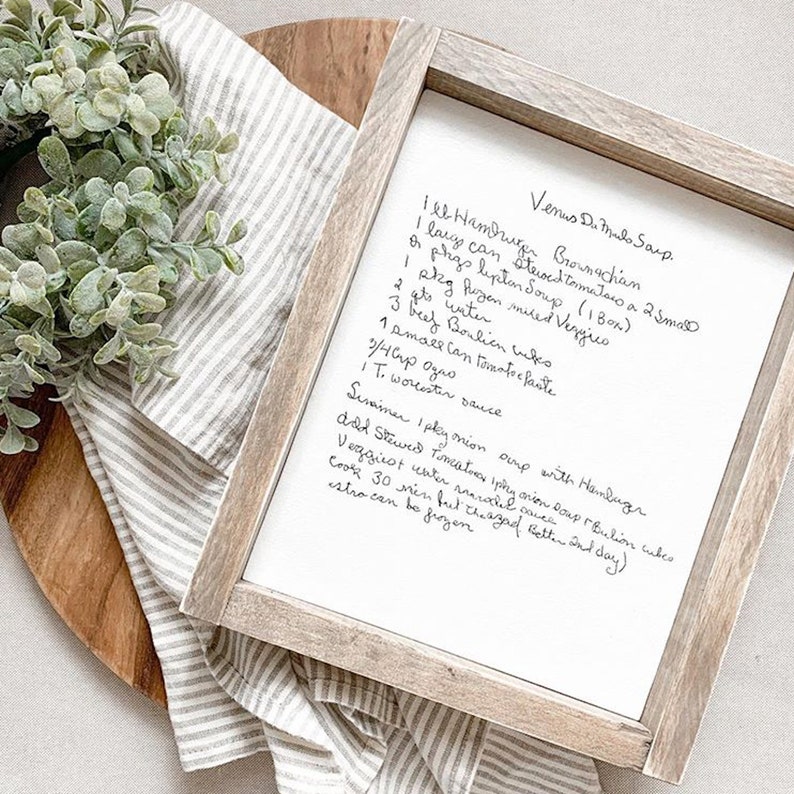 Venus Da Milo Soup.
1 lb Hamburger Brown & drain
1 large can Stewed Tomatoes or 2 small
2 pkgs Lipton Soup (1 Box)
1 pkg frozen mixed Veggies
2 qts water
3 beef Boulion cubes
1 small can tomatoe Paste
3/4 cup Ozo
1 T. worcester sauce
Simmer 1 pkg onion soup with Hamburger
add Stewed Tomatoes, 1 pkg onion soup, Boulion cubes
Veggies + water sauce
Cook 30 min put (Better 2nd day)
extra can be frozen